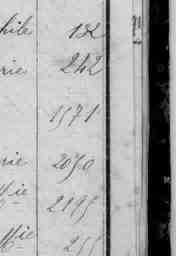 hile 132
rie 242
1571
rie 2050
ffie 2195
ffie 255